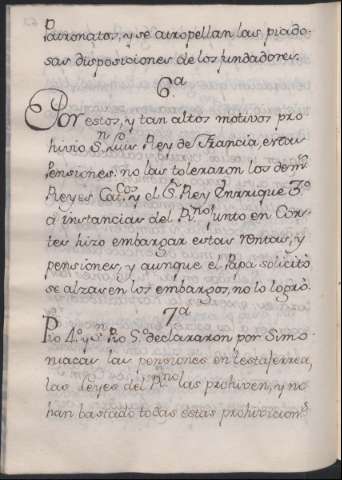 Patronatos, y se atropellan las piado-
sas disposiciones de los fundadores.
6.ª
Por estos, y tan altos motivos pro-
hivio S.n Luis Rey de Francia, estas
Pensiones. no las toleraron los dem.s
Reyes Cat.cos y el S.r Rey Enrrique 3.º
à instancias del R.no junto en Cor-
tes hizo embargar estas rentas, y
pensiones, y aunque el Papa solicitò
se alzasen los embargos, no lo logrò.
7.ª
Pio 4.º y S.n Pio 5.º declararon por Simo-
niacas las pensiones en testaferrea,
las Leyes del R.no las prohiven, y no
han bastado todas estas prohivicion.s